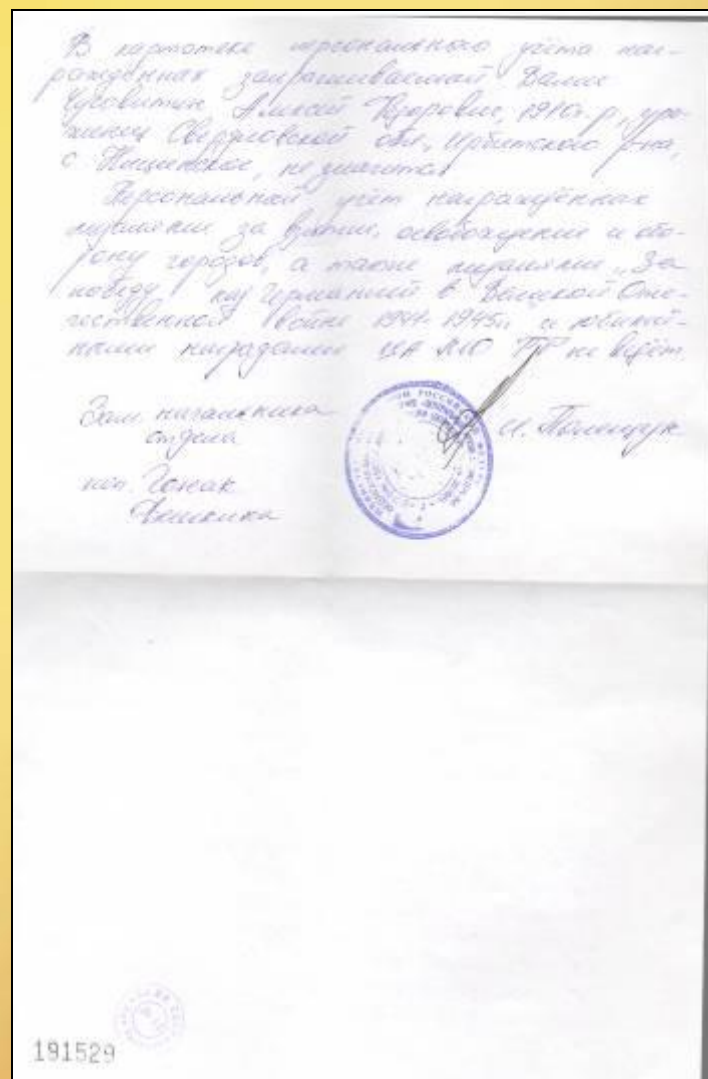 В картотеке персонального учёта наг-
раждённых запрашиваемый Вами
Чусовитин Алексей Егорович, 1910г.р., уро-
женец Свердловской обл., Ирбитского р-на,
с. Ницинское, не значится.
Персональный учёт награждённых
медалями за взятие, освобождение и обо-
рону городов, а также медалями „За
победу над Германией в Великой Оте-
чественной войне 1941-1945гг и юбилей-
ными наградами ЦА МО РФ не ведёт.
Зам. начальника
отдела
И. Полищук
исп.
191529